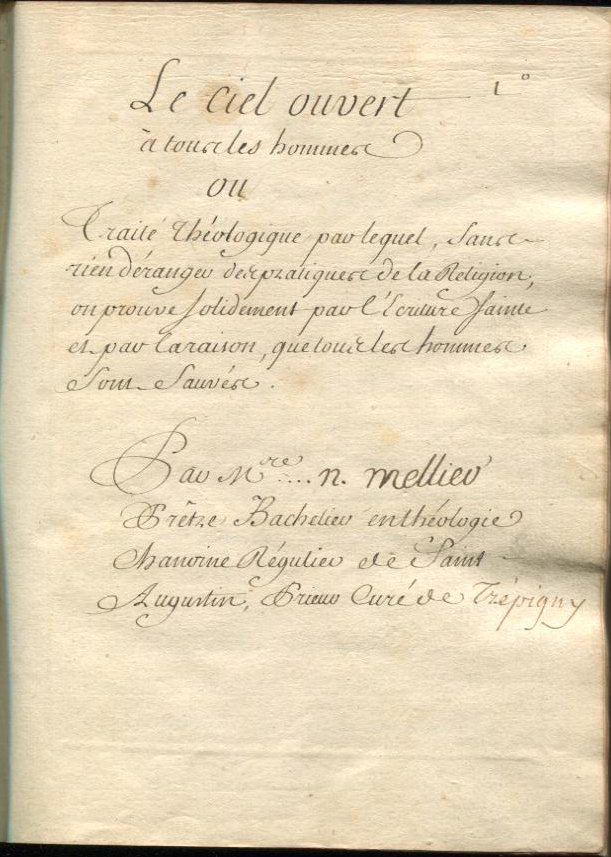 Le ciel ouvert 1°
à tous les hommes
ou
Traité Théologique par lequel, sans
rien déranger des pratiques de la Religion,
on prouve solidement par l'Ecriture sainte
et par la raison, que tous les hommes
sont sauvés.
Par Mre .... n. mellier
Prêtre Bachelier en théologie
Chanoine Régulier de Saint
Augustin, Prieur Curé de Trépigny